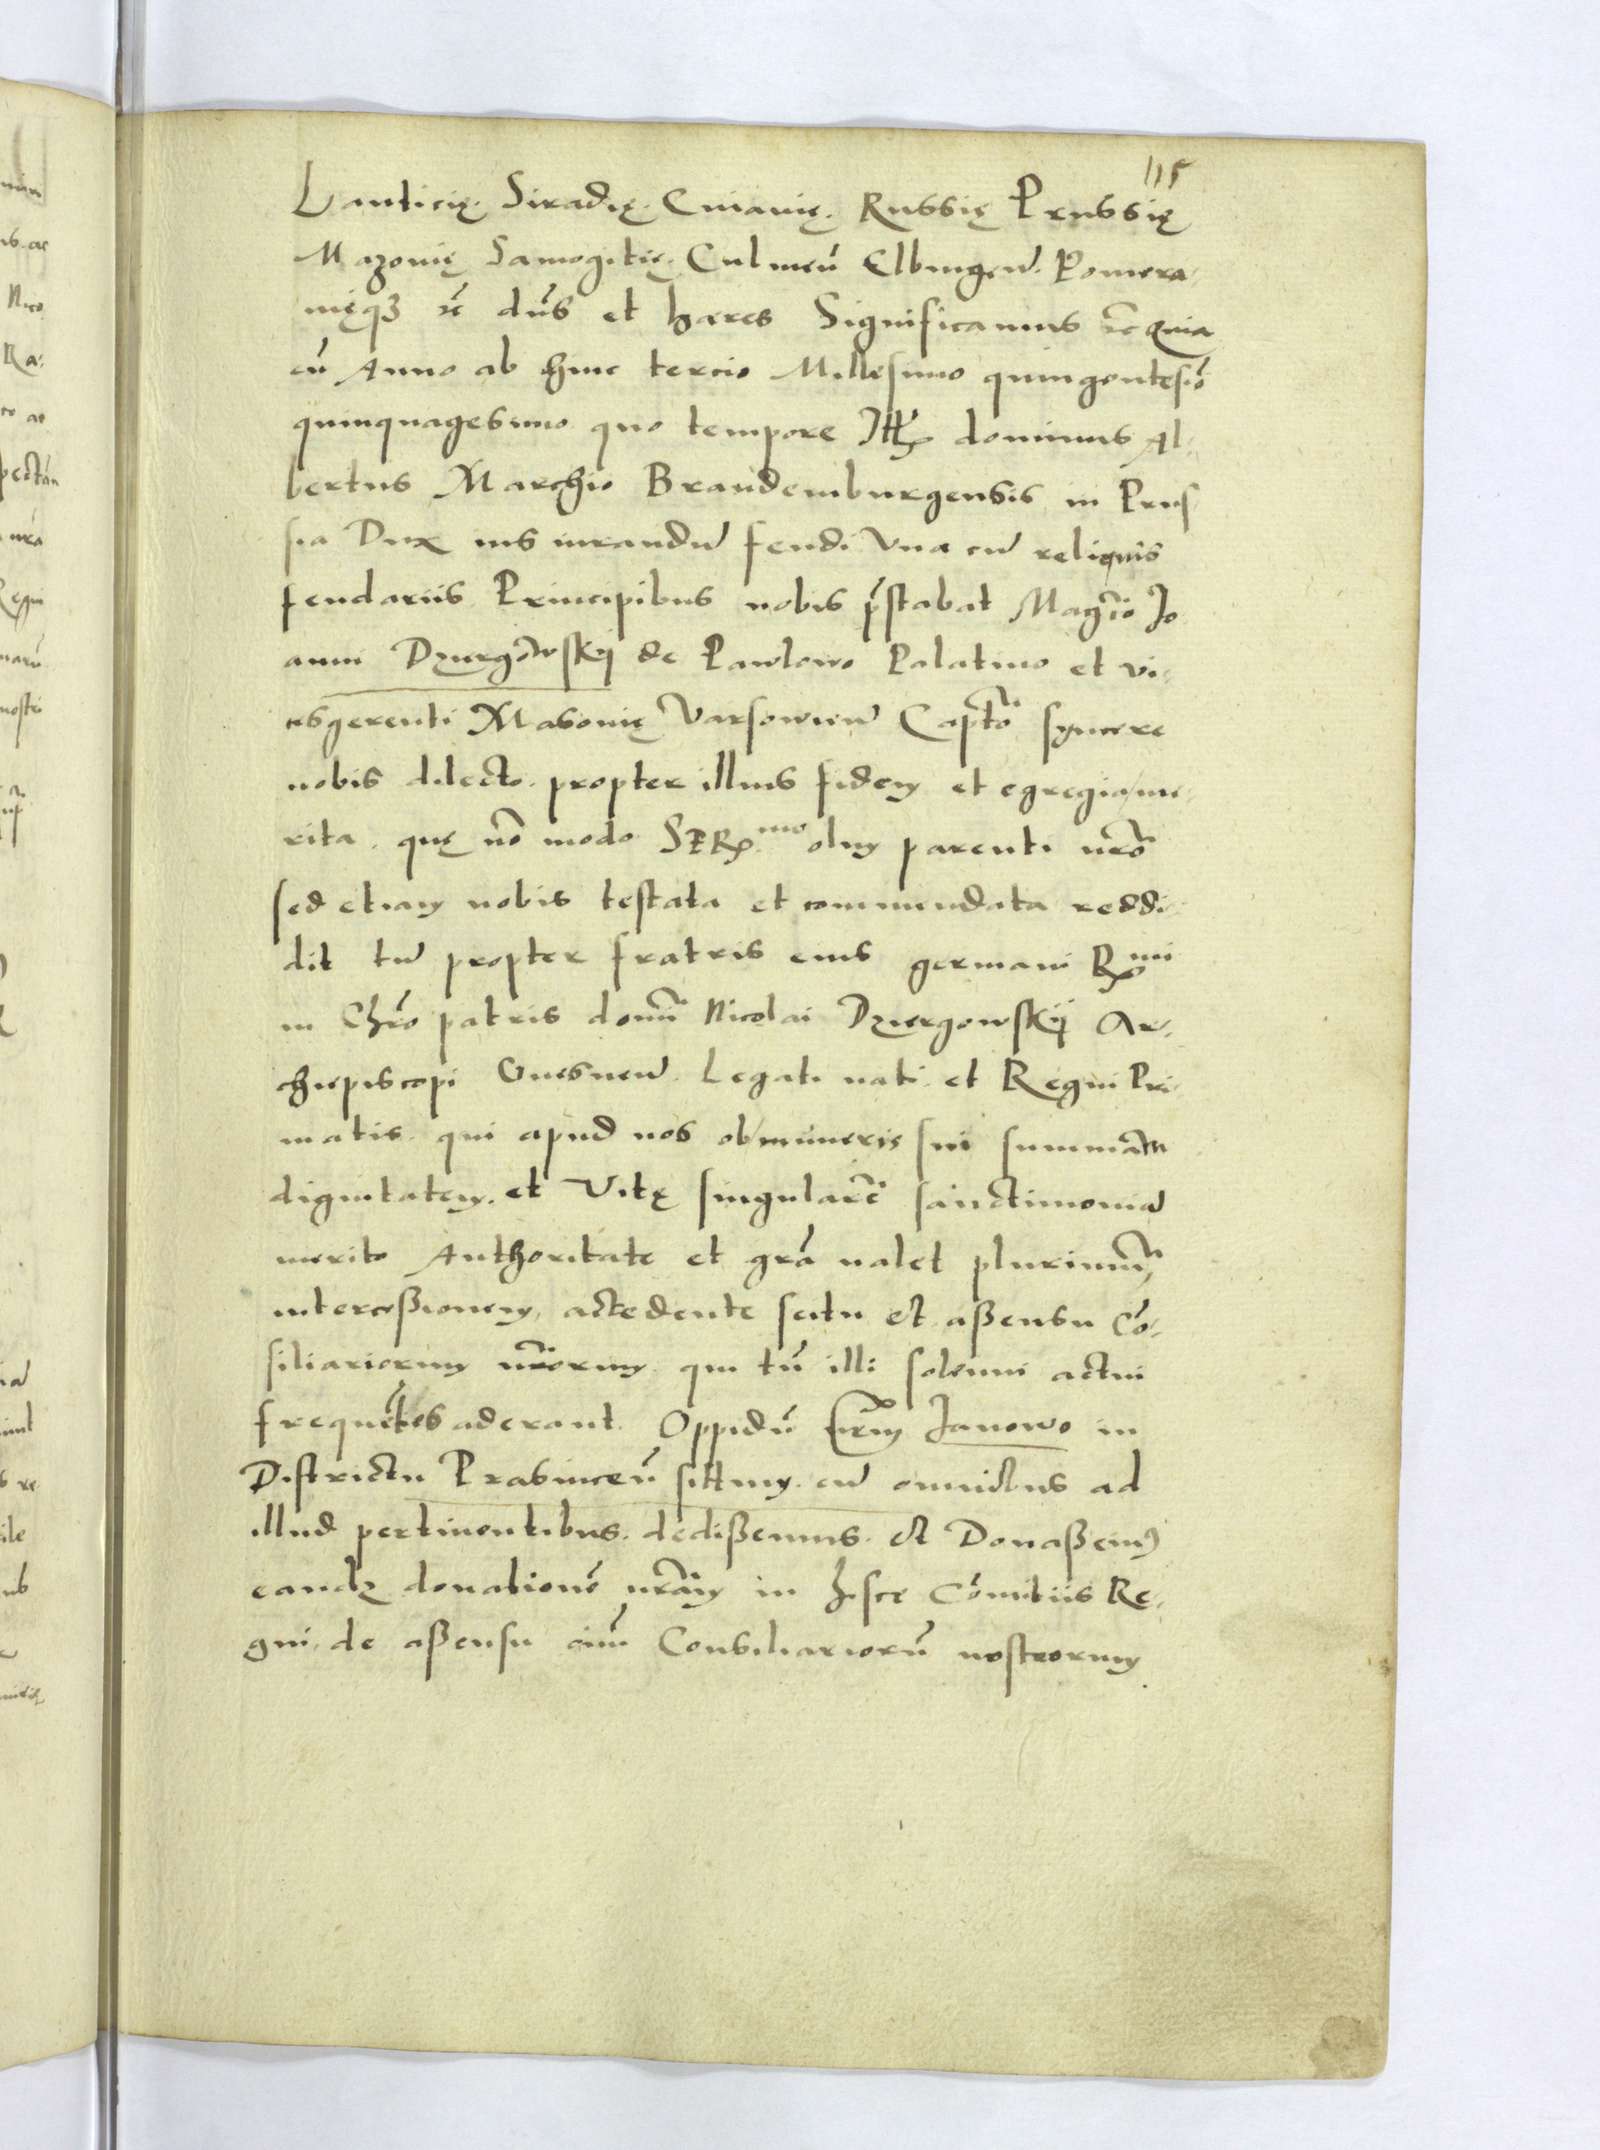 115
Lanticię. Siradię. Cuiauię. Russię Prussię
Mazouię Samogitię. Culmeñ Elbingeñ. Pomera-
nięqȝ ꝛc dñs et hæres Significamus ꝛc Quia
cũ Anno ab hinc tercio Millesimo quingentesio
quinquagesimo quo tempore Illꝛ dominus Al-
bertus Marchio Brandemburgensis in Prus
sia Dux ius iurandũ feudi Vna cũ reliquis
feudariis Principibus nobis p̃stabat Magcio Jo
anni Dzyergowskij de Pawlowo Palatino et vi-
cesgerenti Masouię Varsouieñ Capto syncere
nobis dilecto. propter illius fidem et egregia me-
rita. quę nõ modo SERmo olim parenti nrõ
sed etiam nobis testata et commendata reddi-
dit tũ propter fratris eius germani Rmi
in Chrõ patris domini Nicolai Dzyergowskij Ar-
chiepiscopi Gnesneñ. Legati nati. et Regni Pri-
matis. qui apud nos ob muneris sui summam
dignitatem. et Vitę singularẽ sanctimoniã
merito Authoritate et grã ualet plurimum,
intercessionem, accedente scitu et assensu Cõ-
siliariorum nrõrum qui tũ illi solenni actui
frequẽtes aderant. Oppidũ nrm̃ Janowo in
Districtu Prasniceñ situm. cũ omnibus ad
illud pertinentibus. dedissemus. et Donassemꝰ
eandẽ donationẽ nrãm in hisce Cõmitiis Re-
gni, de assensu oiũm Consiliariorũ nostrorum